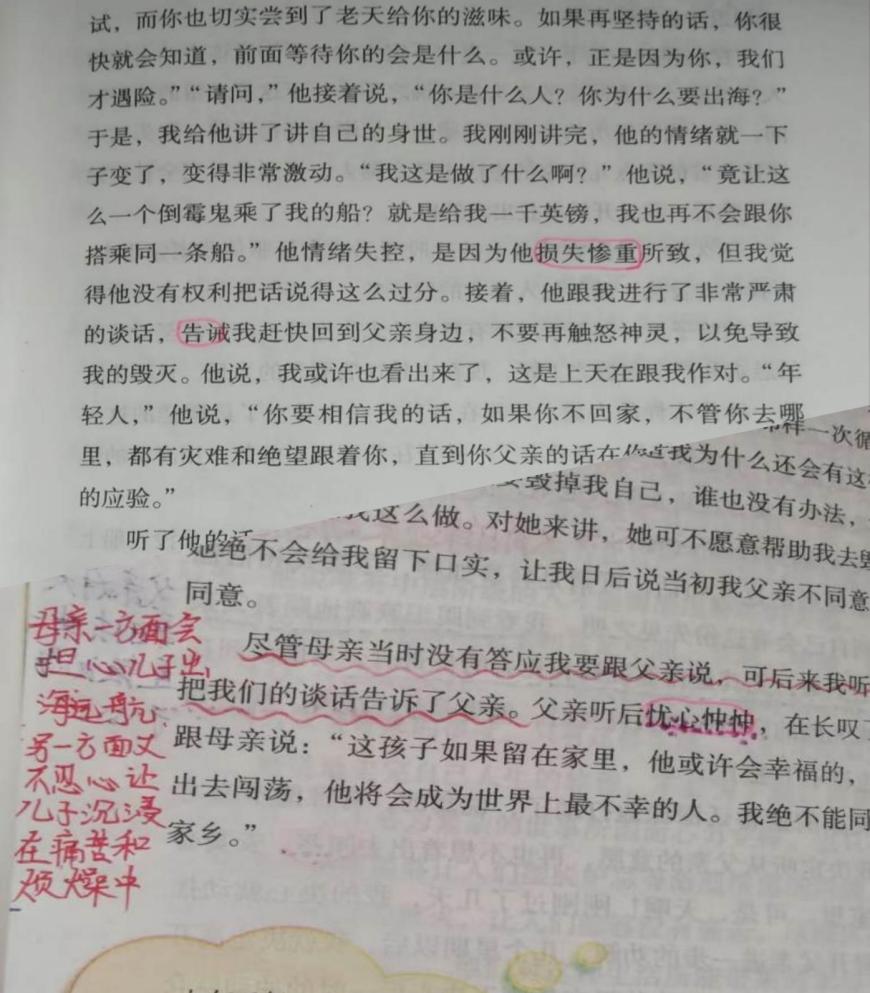 试，而你也切实尝到了老天给你的滋味。如果再坚持的话，你很
快就会知道，前面等待你的会是什么。或许，正是因为你，我们
才遇险。”“请问，”他接着说，“你是什么人？你为什么要出海？”
于是，我给他讲了讲自己的身世。我刚刚讲完，他的情绪就一下
子变了，变得非常激动。“我这是做了什么啊？”他说，“竟让这
么一个倒霉鬼乘了我的船？就是给我一千英镑，我也再不会跟你
搭乘同一条船。”他情绪失控，是因为他损失惨重所致，但我觉
得他没有权利把话说得这么过分。接着，他跟我进行了非常严肃
的谈话，告诫我赶快回到父亲身边，不要再触怒神灵，以免导致
我的毁灭。他说，我或许也看出来了，这是上天在跟我作对。“年
轻人，”他说，“你要相信我的话，如果你不回家，不管你去哪
里，都有灾难和绝望跟着你，直到你父亲的话在你
的应验。”
听了他的
一次循
我为什么还会有这
毁掉我自己，谁也没有办法，
我这么做。对她来讲，她可不愿意帮助我去毁
她绝不会给我留下口实，让我日后说当初我父亲不同意
同意。
尽管母亲当时没有答应我要跟父亲说，可后来我听
把我们的谈话告诉了父亲。父亲听后忧心忡忡，在长叹
跟母亲说：“这孩子如果留在家里，他或许会幸福的，
出去闯荡，他将会成为世界上最不幸的人。我绝不能同
家乡。”
母亲一方面会
担心儿子出
海远航，
另一方面又
不忍心让
儿子沉浸
在痛苦和
烦燥中